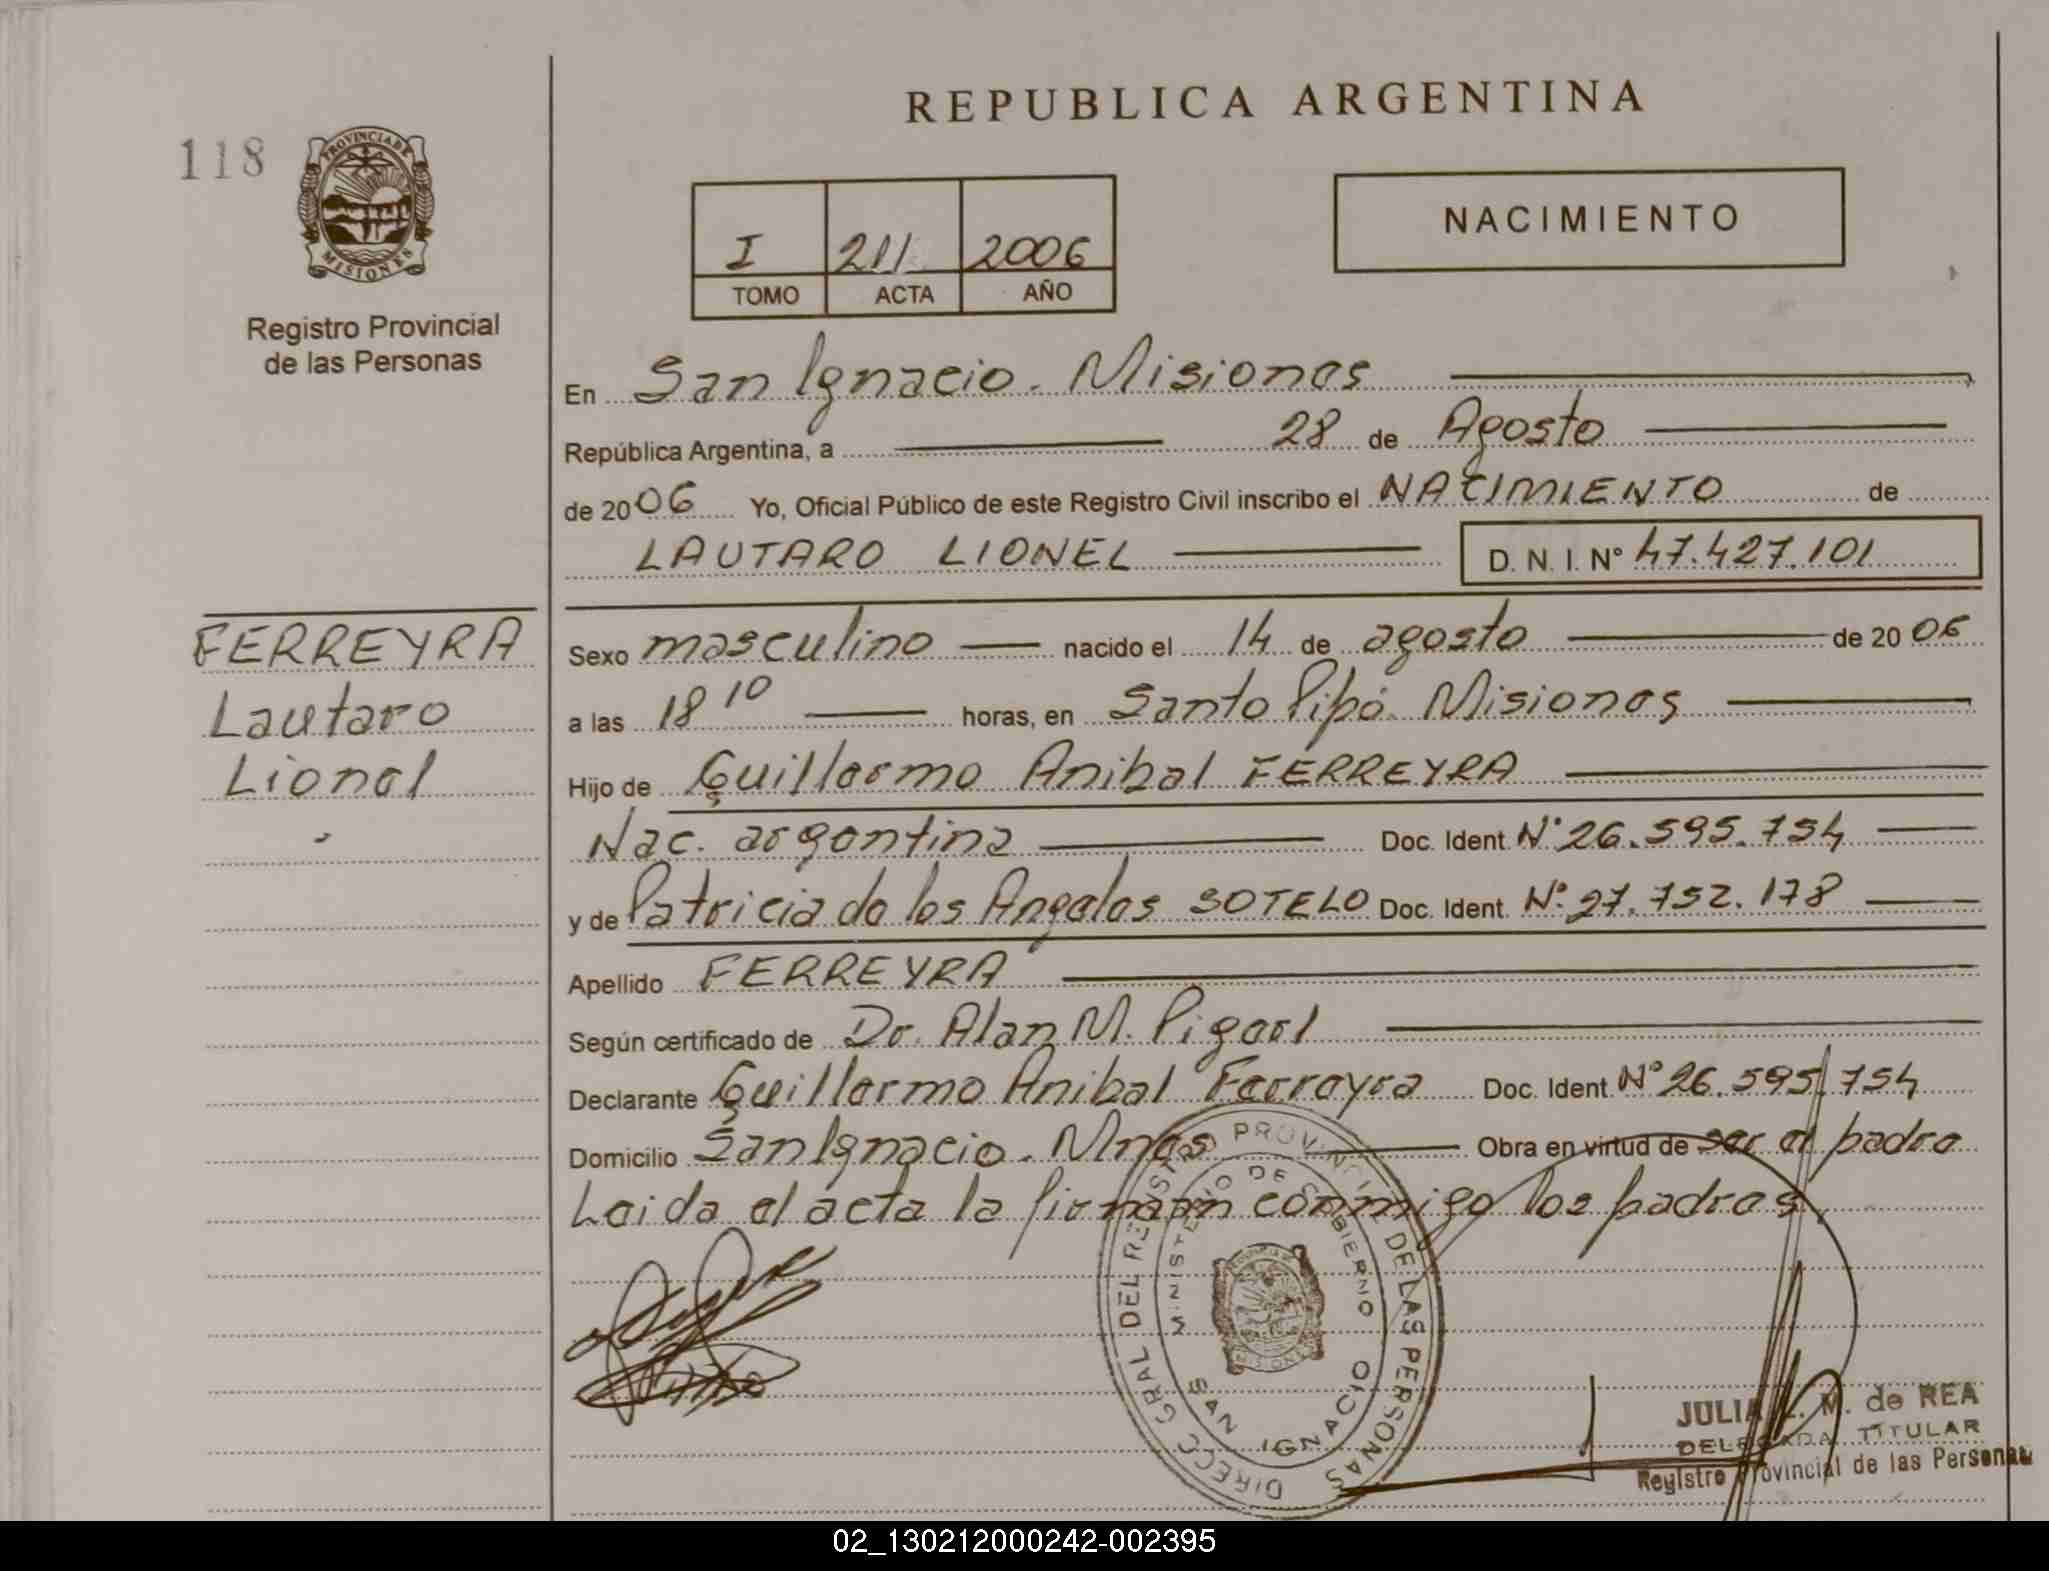 REPUBLICA ARGENTINA
118
PROVINCIA DE
MISIONES
Registro Provincial
de las Personas
I 211 2006
TOMO ACTA AÑO
NACIMIENTO
En San Ignacio. Misiones
República Argentina, a 28 de Agosto
de 2006 Yo, Oficial Público de este Registro Civil inscribo el NACIMIENTO de
LAUTARO LIONEL D. N. I. N° 47.427.101
FERREYRA
Lautaro
Lionel
Sexo masculino nacido el 14 de agosto de 2006
a las 18 10 horas, en Santo Pipó. Misiones
Hijo de Guillermo Anibal FERREYRA
Nac. argentina Doc. Ident. N° 26.595.754
y de Patricia de los Angeles SOTELO Doc. Ident. N° 27.752.178
Apellido FERREYRA
Según certificado de Dr. Alan M.
Declarante Guillermo Anibal Ferreyra Doc. Ident. N° 26.595.754
Domicilio San Ignacio. Mnes Obra en virtud de ser el padre
Leida el acta la firman conmigo los padres
DIRECC GRAL DEL REGISTRO PROVINCIAL DE LAS PERSONAS
MINISTERIO DE GOBIERNO
SAN IGNACIO
MISIONES
JULIA M. de REA
DELEGADA TITULAR
Registro Provincial de las Personas
02_130212000242-002395